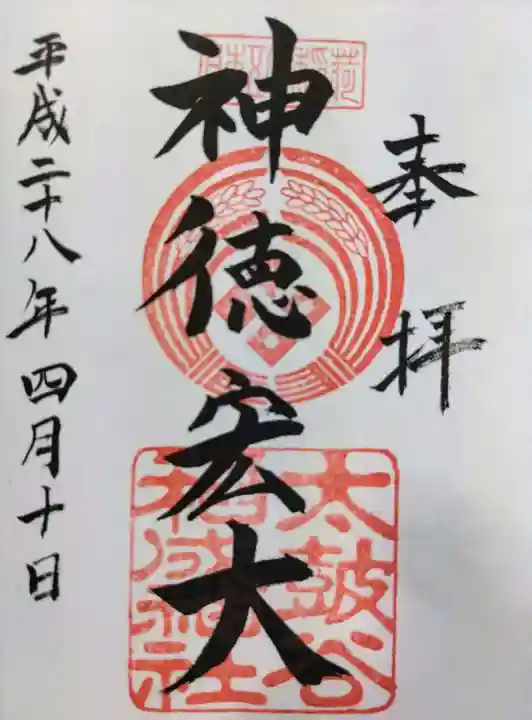 奉拝
神徳宏大
平成二十八年四月十日
太鼓谷
稲成神社